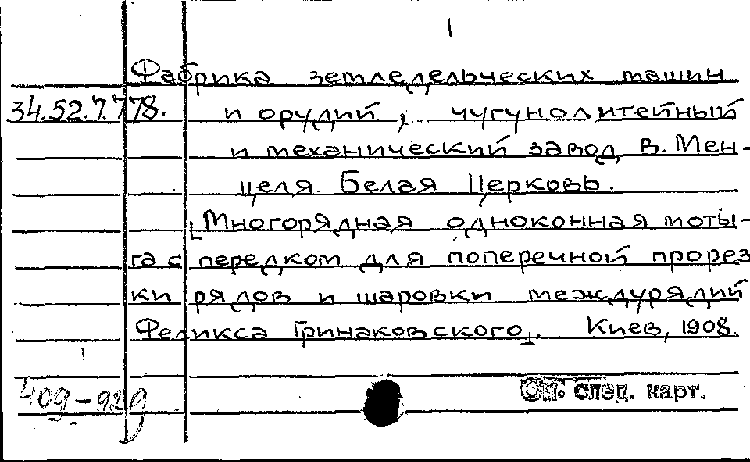 1
Фабрика земледельческих машин
34.52.7.778. и орудий, чугунолитейный
и механический завод В. Мен-
целя. Белая Церковь.
[Многорядная одноконная моты-
га с передком для поперечной прорез
ки рядов и шаровки междурядий
Феликса Гринаковского]. Киев, 1908.
409-92g
См. спец. карт.